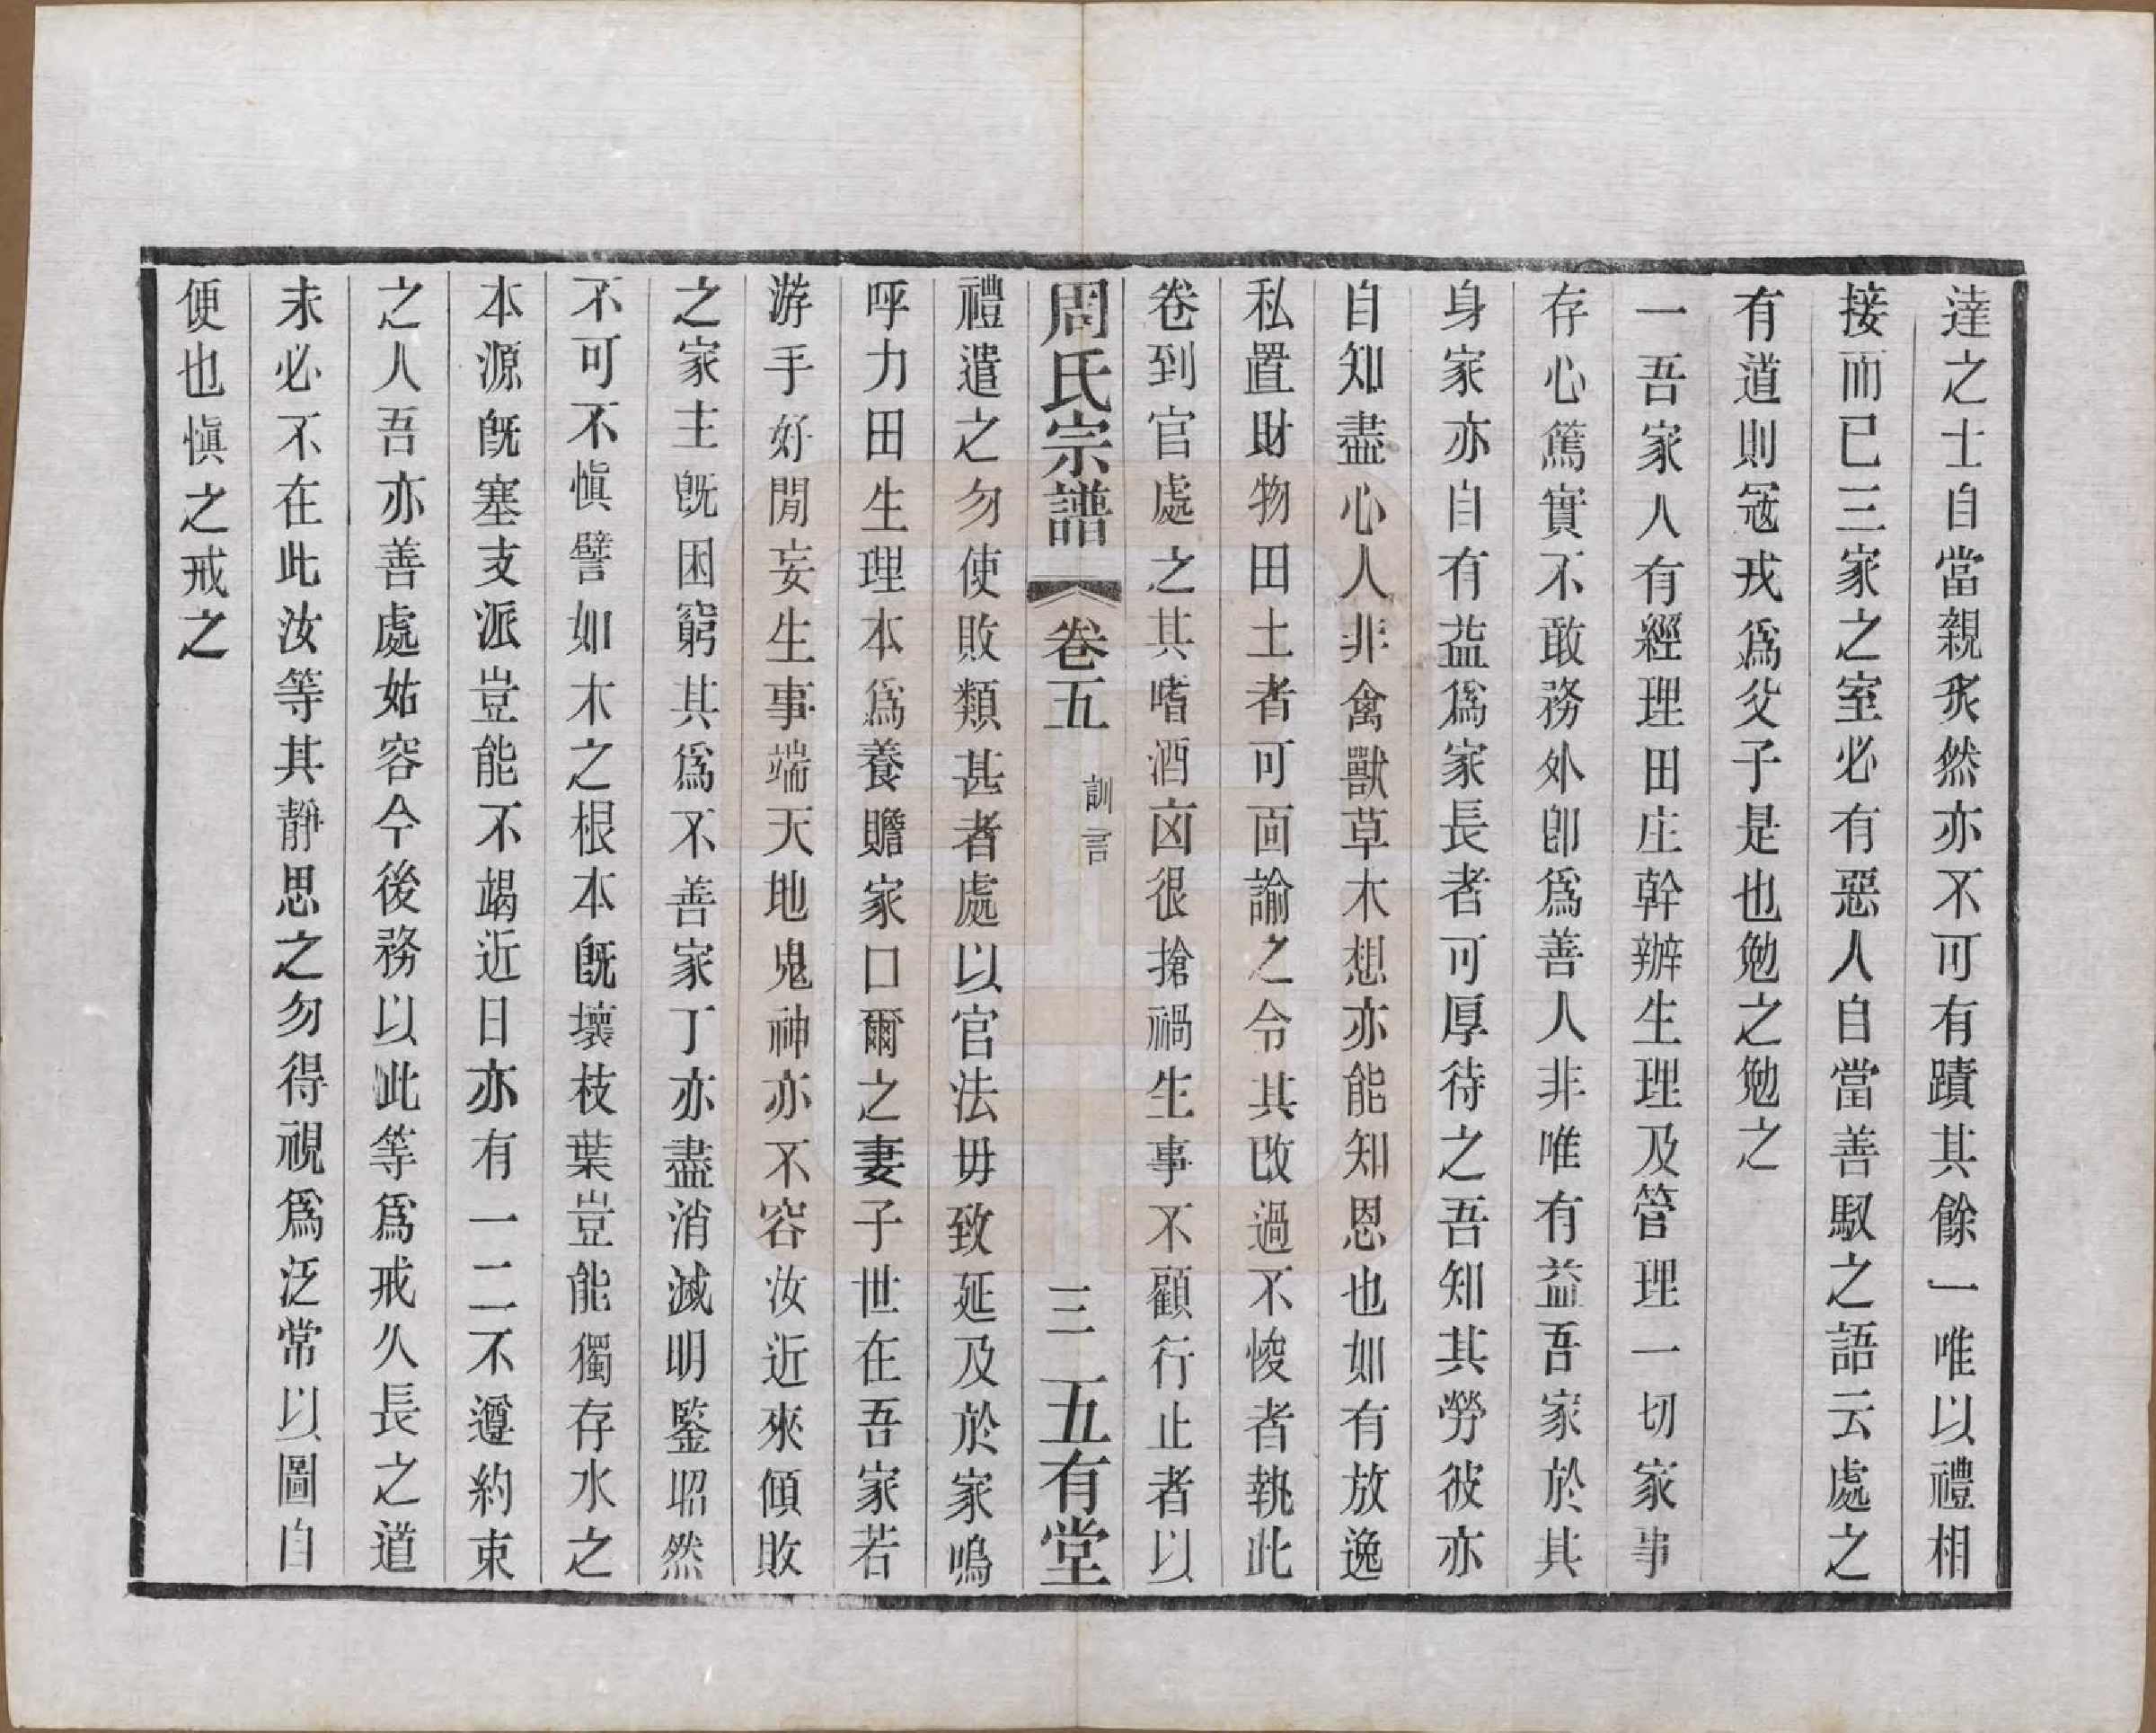 達之士自當親炙然亦不可有蹟其餘一唯以禮相
接而已三家之室必有惡人自當善馭之語云處之
有道則冦戎爲父子是也勉之勉之
一吾家人有經理田庄幹辦生理及管理一切家事
存心篤實不敢務外卽爲善人非唯有益吾家於其
身家亦自有益爲家長者可厚待之吾知其勞彼亦
自知盡心人非禽獸草木想亦能知恩也如有放逸
私置財物田土者可面諭之令其改過不悛者執此
卷到官處之其嗜酒凶很搶禍生事不顧行止者以
周氏宗譜 卷五 訓言 三 五有堂
禮遣之勿使敗類甚者處以官法毋致延及於家嗚
呼力田生理本爲養贍家口爾之妻子世在吾家若
游手好閒妄生事端天地鬼神亦不容汝近來傾敗
之家主旣困窮其爲不善家丁亦盡消滅明鑒昭然
不可不愼譬如木之根本旣壞枝葉豈能獨存水之
本源旣塞支派豈能不竭近日亦有一二不遵約束
之人吾亦善處姑容今後務以此等爲戒久長之道
未必不在此汝等其靜思之勿得視爲泛常以圖自
便也愼之戒之